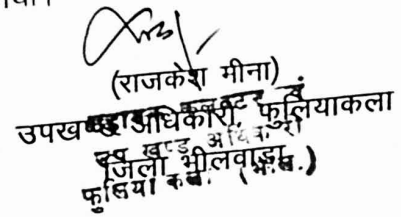 (राजकेश मीना)
उपखण्ड अधिकारी, फुलियाकला
जिला भीलवाड़ा
उप खण्ड अधिकारी
फुलिया कलां (भील.)